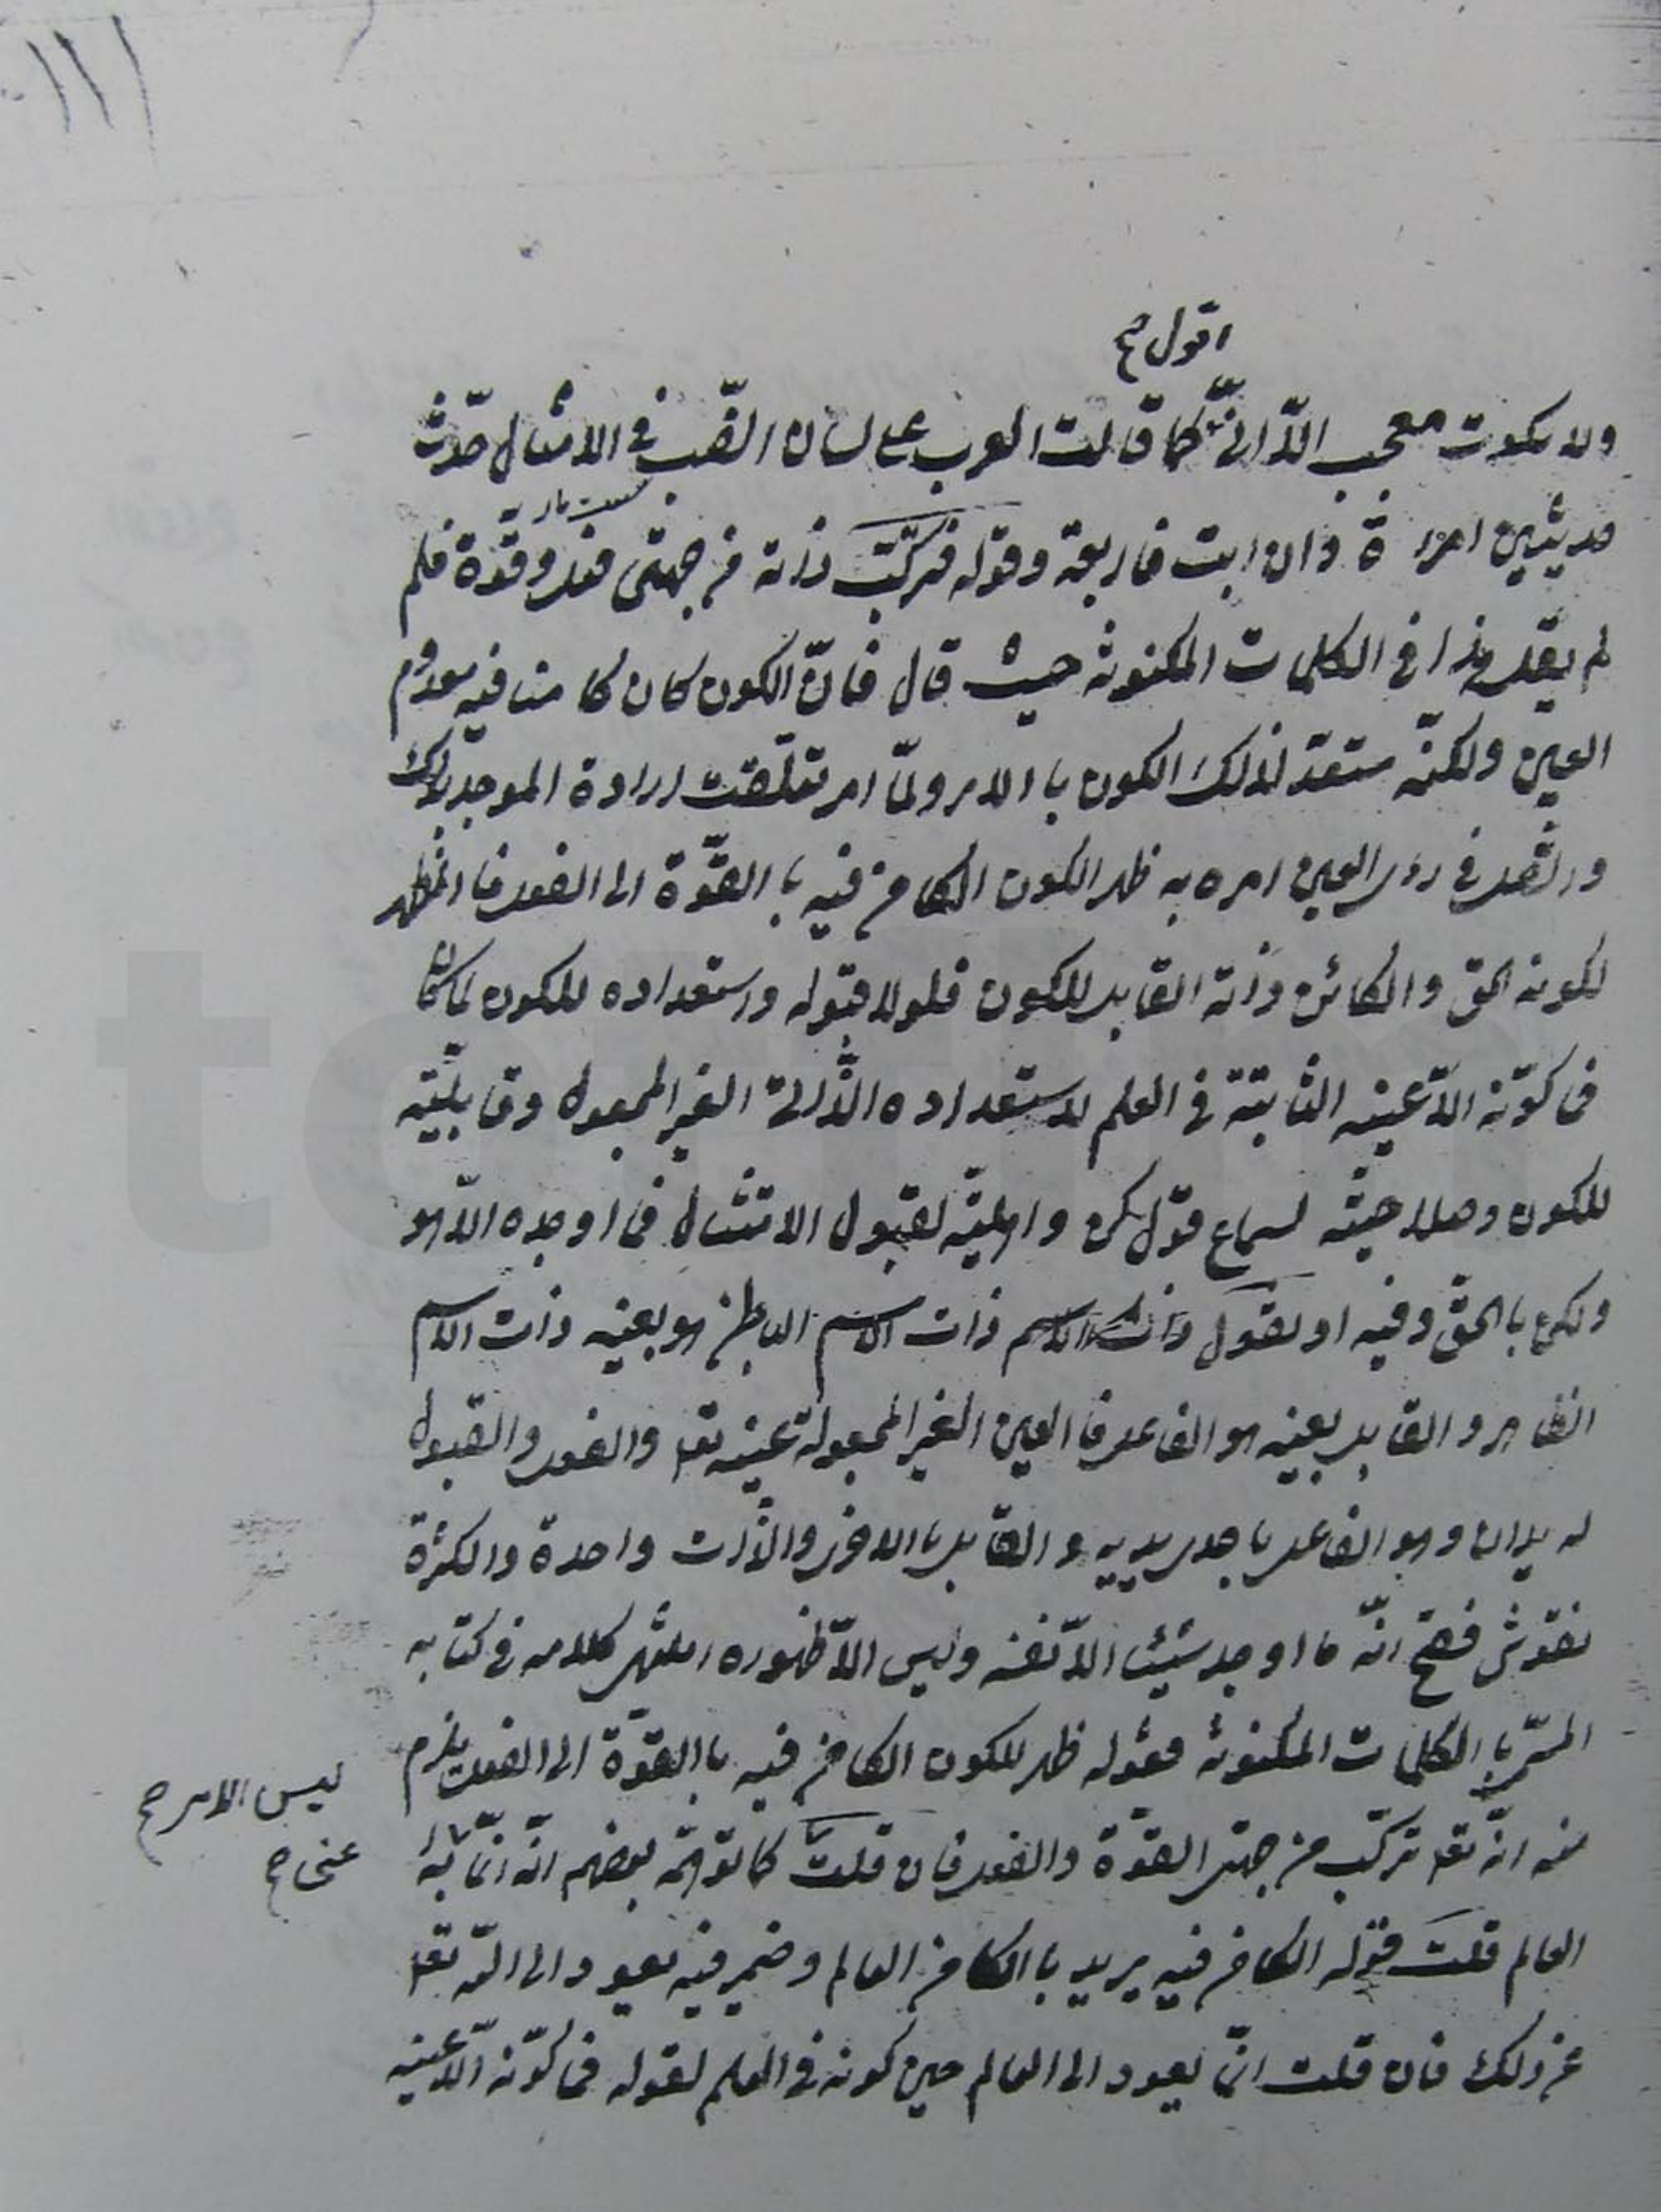 ١١١
اقول صح
ولا سكوت معجب الّا انّى كما قالت العرب على لسان الضّب فى الامثال حدّث
حديثين امرءة وان ابت فاربعة وقوله فتركّب ذاته من جهتى فعل وقوّة فلم
لم يقل هذا فى الكلمات المكنونة حيث قال فانّ الكون كان كامنا فيه معدوم
العين ولكنّه مستعدّ لذلك الكون باالامر ولمّا امر تعلّقت ارادة الموجد بذلك
واتّصل فى راى العين امره به ظهر الكون الكامن فيه باالقوّة الى الفعل فالمظهر
لكونه الحق والكائن ذاته القابل للكون فلولا قبوله واستعداده للكون لما كان
فما كوّنه الّا عينه الثابتة فى العلم لاستعداده الذّاتى الغير المجعول وقابليّته
للكون وصلاحيته لسماع قول كن واهليّته لقبول الامتثال فما اوجده الّا هو
ولكن بالحقّ وفيه او نقول ذات الاسم الباطن هو بعينه ذات الاسم
الظاهر والقابل بعينه هو الفاعل فالعين الغير المجعولة عينه تعا والفعل والقبول
له يدان وهو الفاعل باحدى يديه والقابل باالاخرى والذّات واحدة والكثرة
نقوش فصّح انّه ما اوجد شيئا الّا نفسه وليس الّا ظهوره انتهى كلامه فى كتابه
المسمّى باالكلمات المكنونة فقوله ظهر للكون الكامن فيه باالقوّة الى الفعل يلزم
منه انّه تعا تركّب من جهتى القوّة والفعل فان قلتَ كما توهّمه بعضهم انّه انّما
العالم قلت قوله الكامن فيه يريد باالكامن العالم وضمير فيه يعود الى اللّه تعا
عن ذلك فان قلت انّما يعود الى العالم حين كونه فى العلم لقوله فما كوّنه الّا عينه
ليس الامر صح
عنى صح